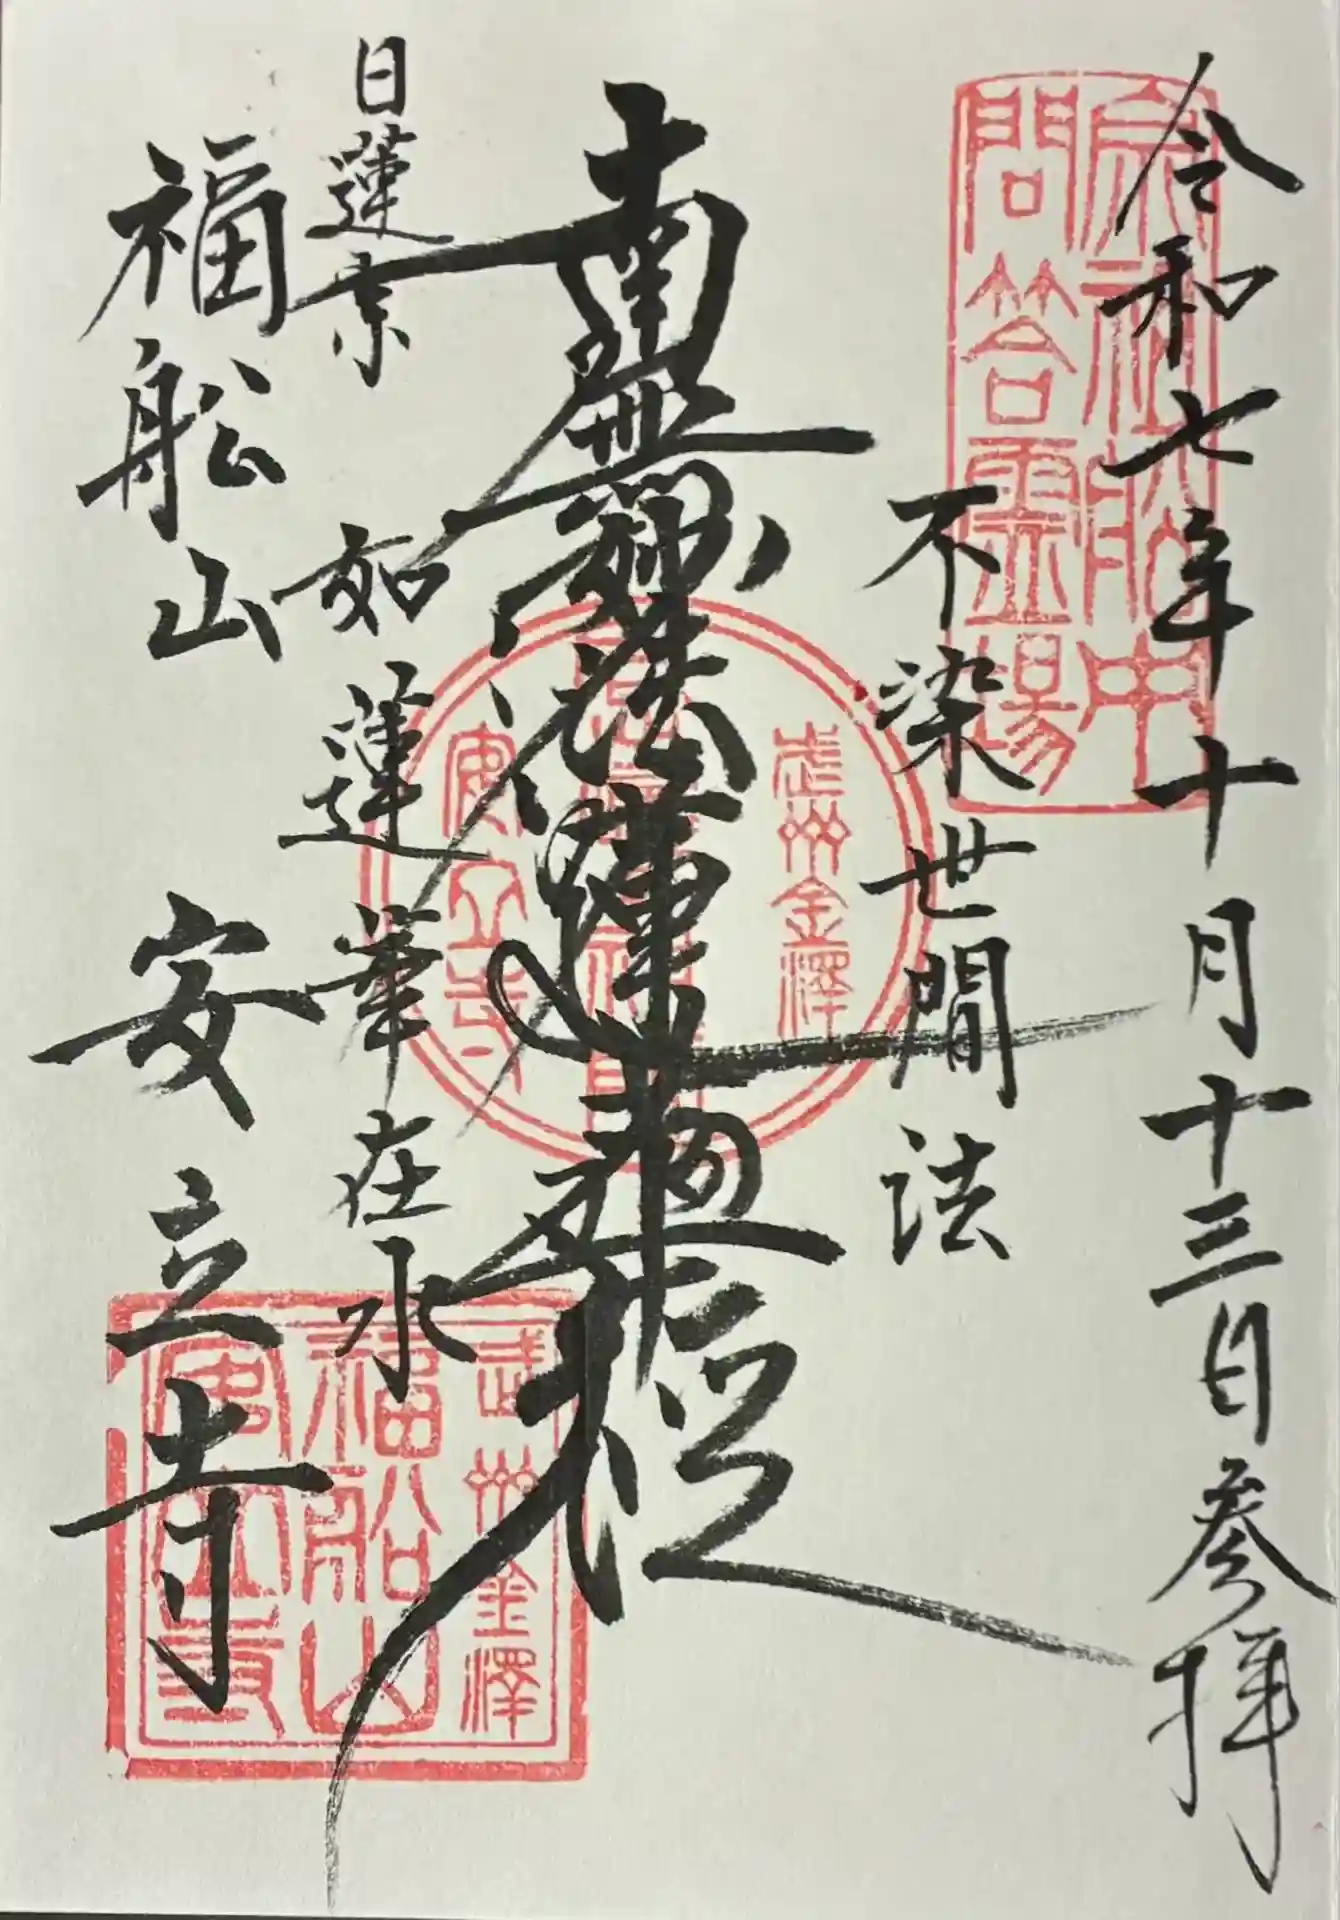 令和七年十月十三日参拝
宗祖船中
問答霊場
不染世間法
南無妙法蓮華経
武州金澤
安立寺
日蓮宗
如蓮華在水
福舩山
安立寺
武州金澤
福船山
安立寺